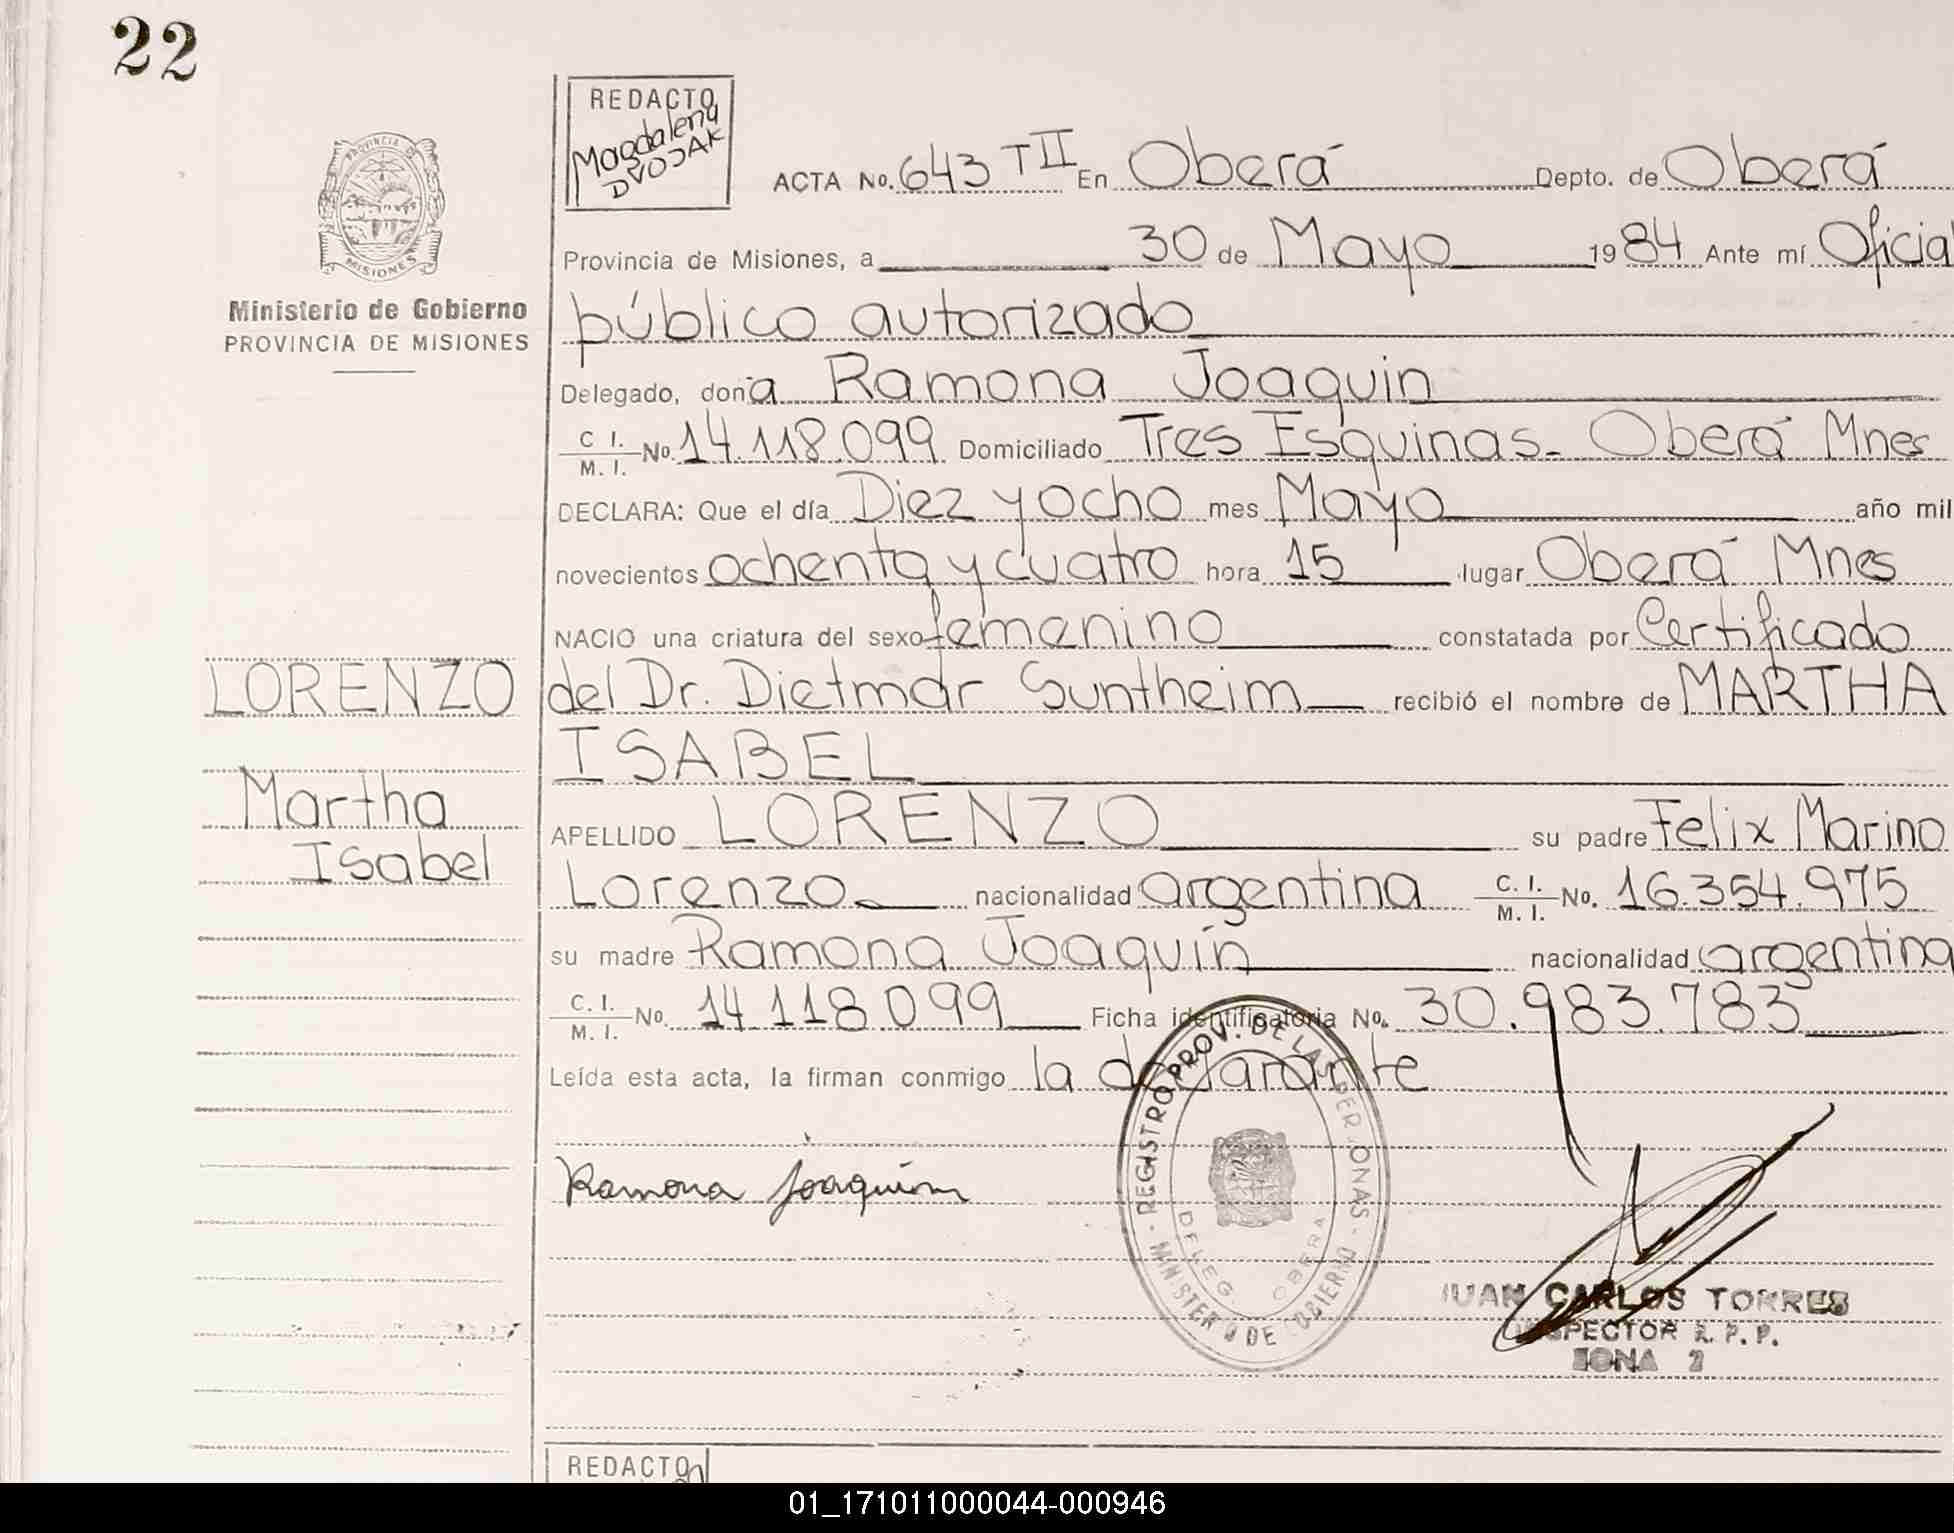 22
REDACTO
Magdalena
DVOJAK
PROVINCIA DE
MISIONES
Ministerio de Gobierno
PROVINCIA DE MISIONES
ACTA No. 643 TII En Oberá Depto. de Oberá
Provincia de Misiones, a 30 de Mayo 1984 Ante mí Oficial
público autorizado
Delegado, doña Ramona Joaquin
C I. / M. I. No. 14.118.099 Domiciliado Tres Esquinas - Oberá Mnes
DECLARA: Que el día Diez y ocho mes Mayo año mil
novecientos ochenta y cuatro hora 15 lugar Oberá Mnes
NACIO una criatura del sexo femenino constatada por Certificado
del Dr. Dietmar Suntheim recibió el nombre de MARTHA
ISABEL
APELLIDO LORENZO su padre Felix Marino
Lorenzo nacionalidad argentina C. I. / M. I. No. 16.354.975
su madre Ramona Joaquín nacionalidad argentina
C. I. / M. I. No. 14 118 099 Ficha identificatoria No. 30.983.783
Leída esta acta, la firman conmigo la declarante
LORENZO
Martha
Isabel
Ramona Joaquim
REGISTRO PROV. DE LAS PERSONAS
MINISTERIO DE GOBIERNO
DELEG. OBERA
JUAN CARLOS TORRES
INSPECTOR R. P. P.
ZONA 2
REDACTO
01_171011000044-000946